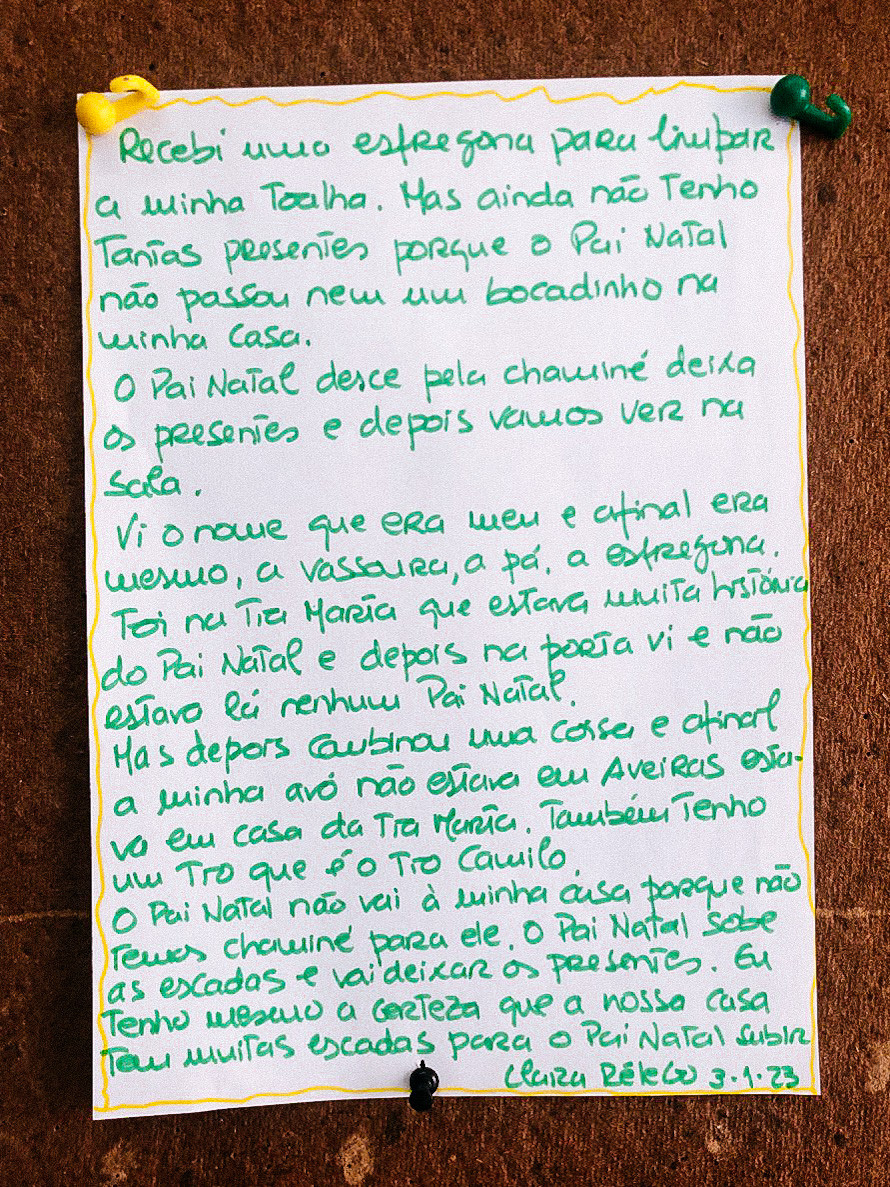 Recebi uma esfregona para limpar
a minha Toalha. Mas ainda não Tenho
Tantas presentes porque o Pai Natal
não passou nem um bocadinho na
minha casa.
O Pai Natal desce pela chaminé deixa
os presentes e depois vamos ver na
sala.
Vi o nome que era meu e afinal era
mesmo, a vassoura, a pá, a esfregona.
Foi na Tia Maria que estava muita história
do Pai Natal e depois na porta vi e não
estava lá nenhum Pai Natal.
Mas depois combinou uma coisa e afinal
a minha avó não estava em Aveiras esta-
va em casa da Tia Maria. Também Tenho
um Tio que é o Tio Camilo.
O Pai Natal não vai à minha casa porque não
Temos chaminé para ele. O Pai Natal sobe
as escadas e vai deixar os presentes. Eu
Tenho mesmo a certeza que a nossa casa
Tem muitas escadas para o Pai Natal subir
3.1.23